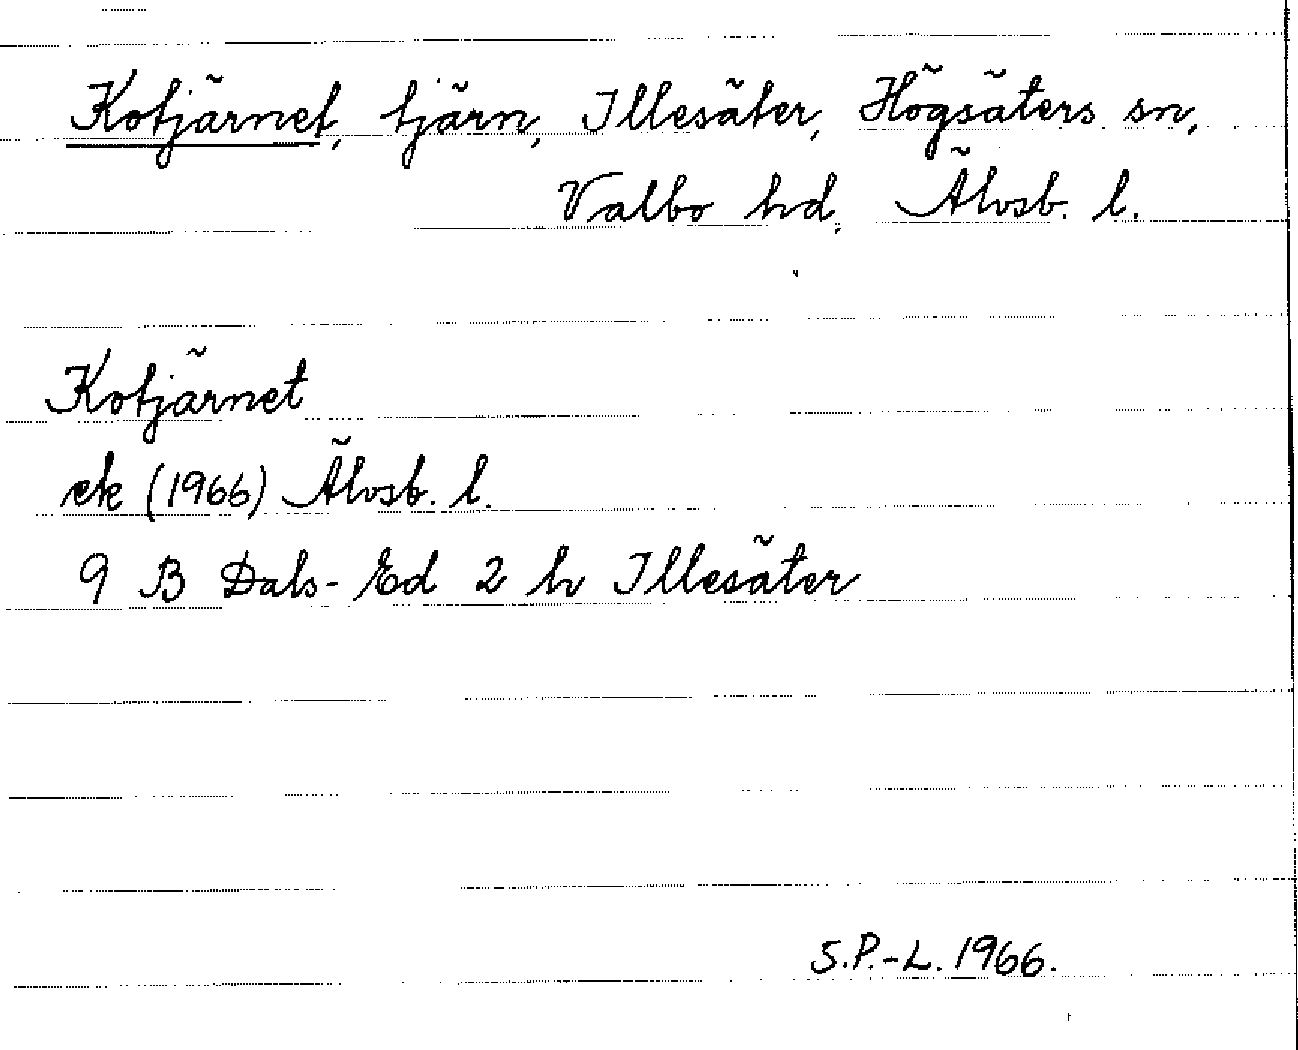 Kotjärnet, tjärn, Illesäter, Högsäters sn,
Valbo hd, Älvsb. l.
Kotjärnet
ek (1966) Älvsb. l.
9 B Dals-Ed 2 h Illesäter
S.P.-L. 1966.